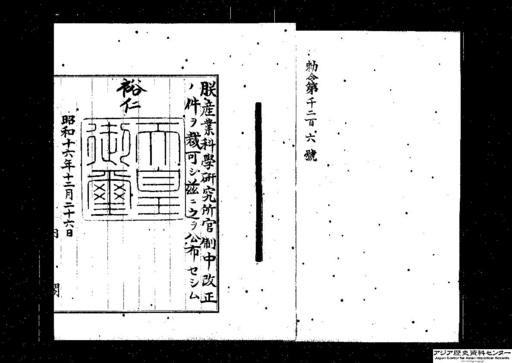 勅令第千二百六號
朕産業科學研究所官制中改正
ノ件ヲ裁可シ茲ニ之ヲ公布セシム
裕仁
天皇
御璽
昭和十六年十二月二十六日
内閣
アジア歴史資料センター
Japan Center for Asian Historical Records